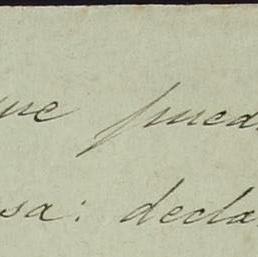 que pueda
sa: decla